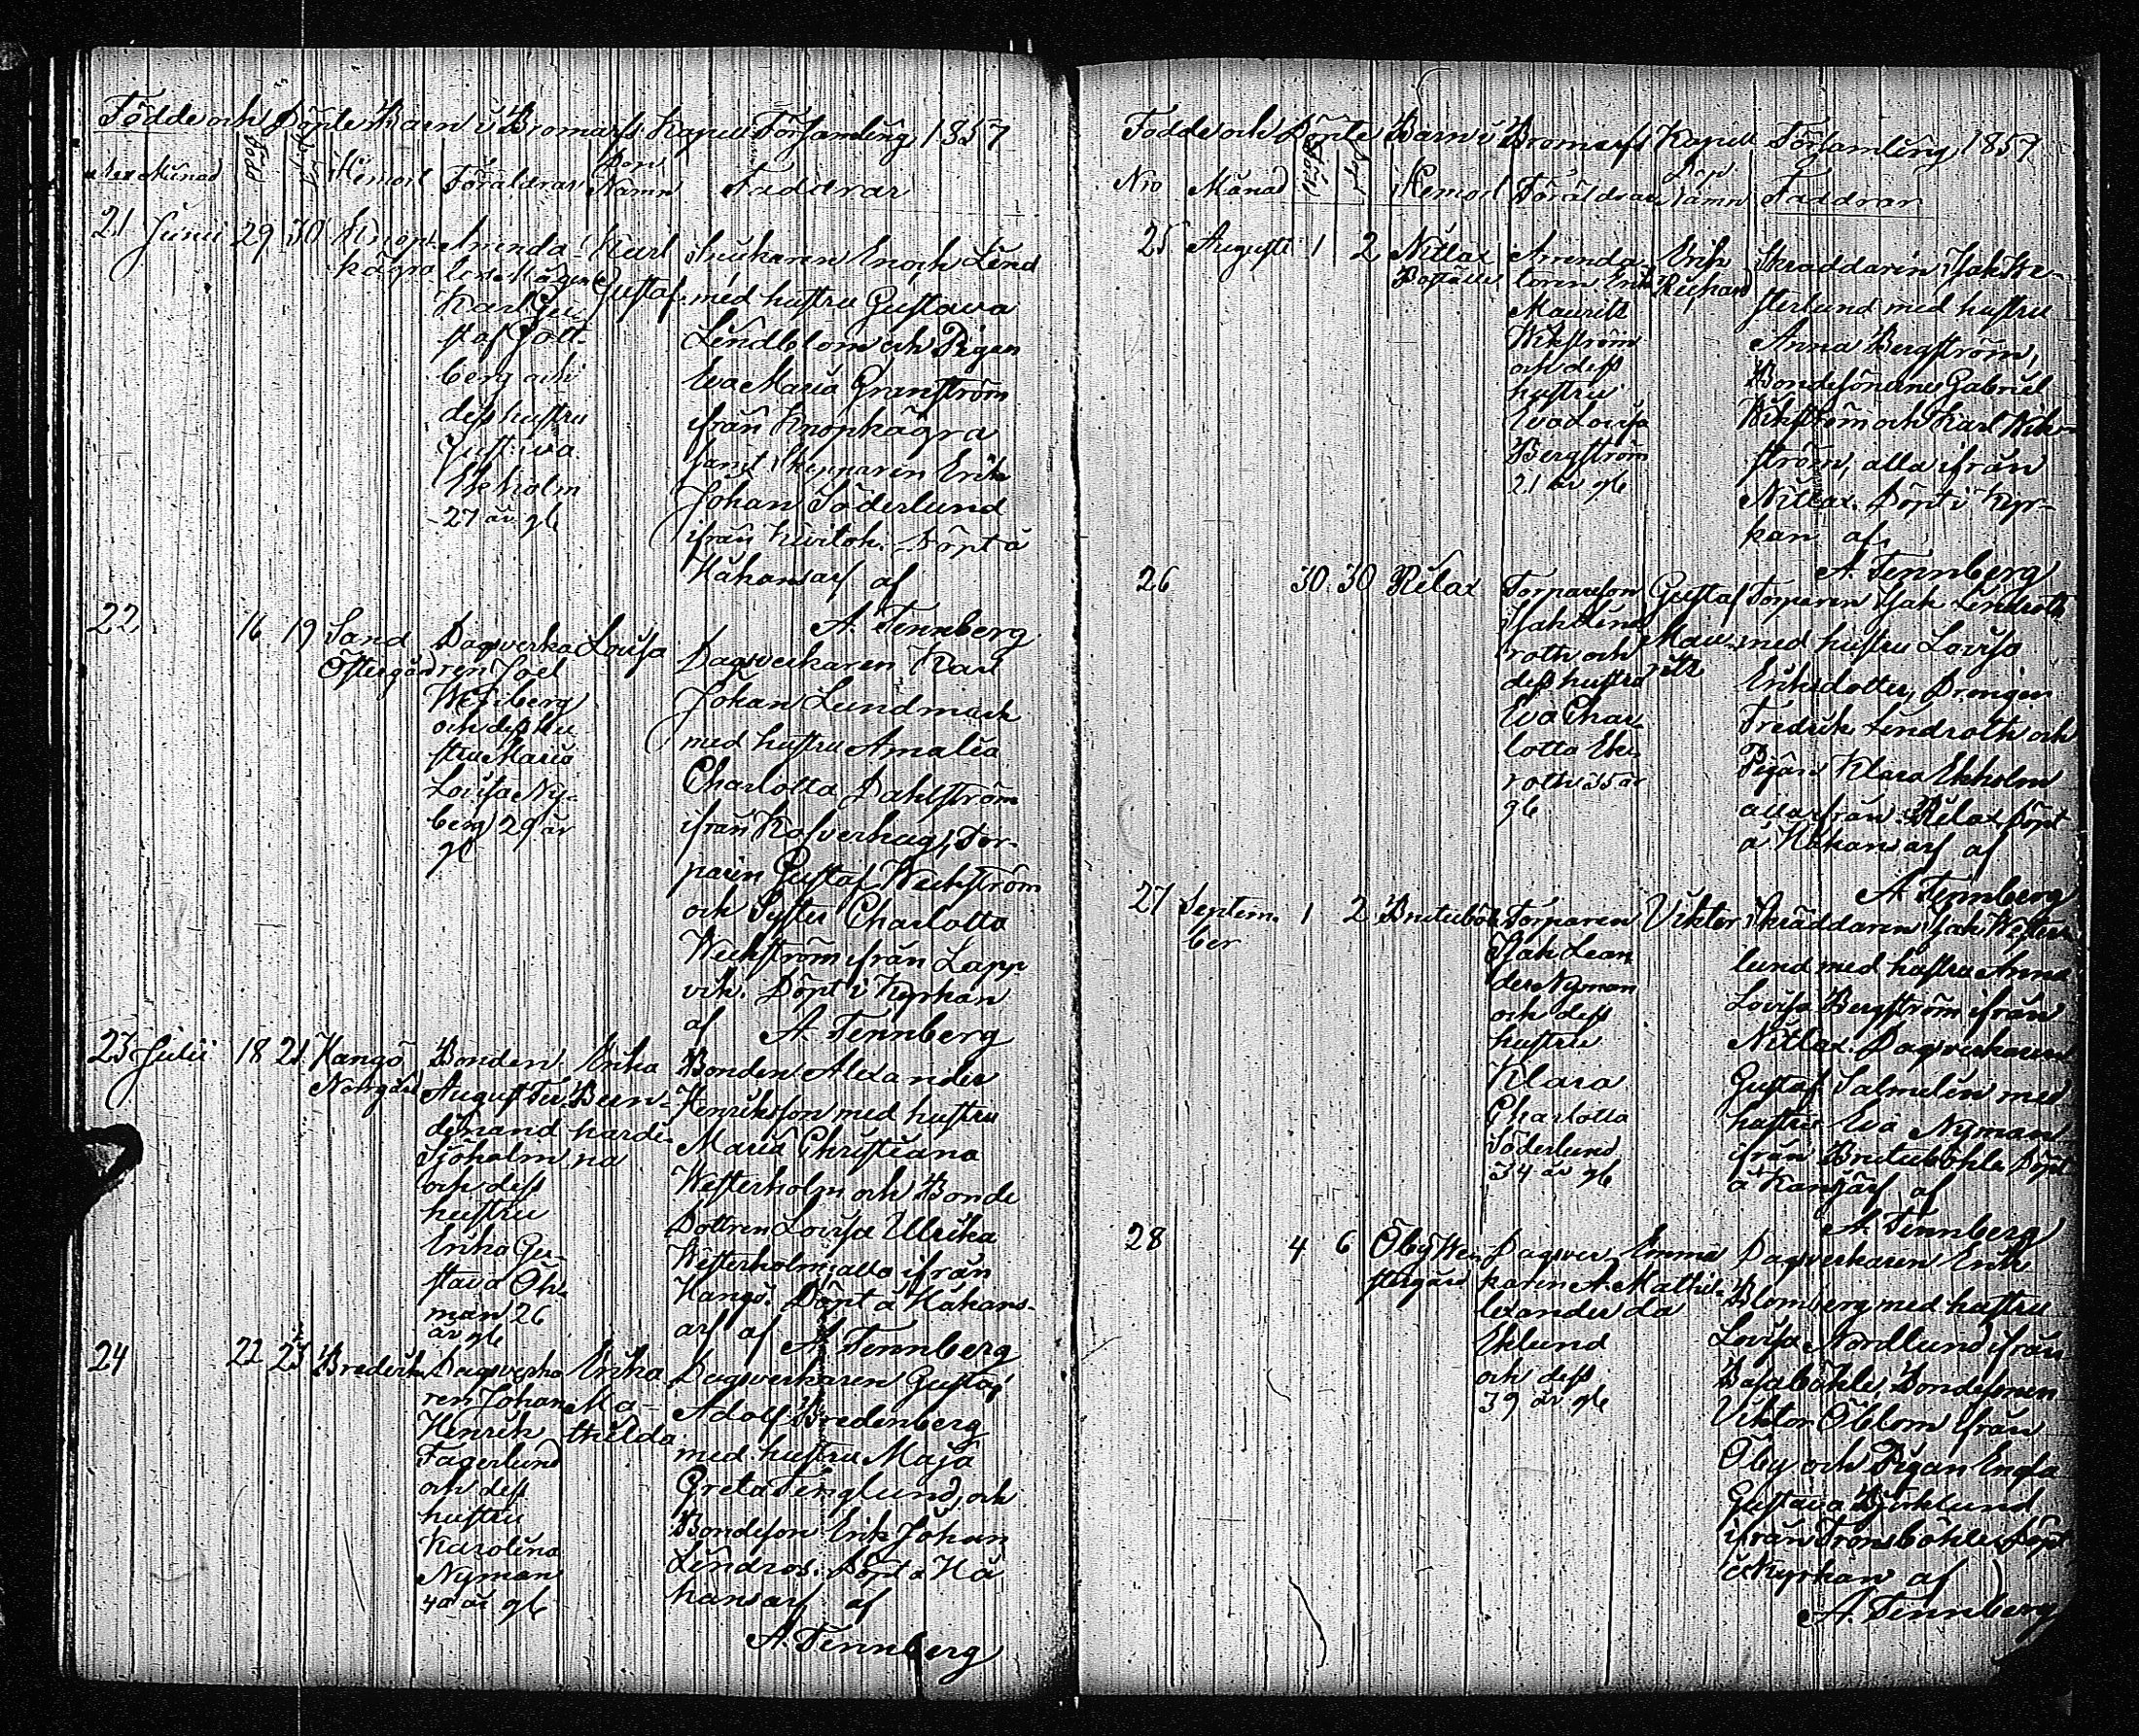 Födde och Döpte Barn i Bromarfs Kapell Församling 1857
Månad Född Hemort Föräldrar Dop Namn Faddrar
21 Junii 29 30 Knop-
kägra
Arenda-
Karl Gu-
staf Gott-
berg och
dess hustru
Gustava
Ekholm
27 år gl
Karl
Gustaf
Enoch Lind
med hustru Gustava
Lindblom och Pigan
Eva Maria Granström
ifrån Knopkägra
samt Skepparen Erik
Johan Söderlund
ifrån Döpt å
Håkansarf af
A. Tennberg
22 16 19 Sand
Östergård
Dagverka-
ren Joel
Wenberg
och dess hu-
stru Maria
Lovisa Ny-
berg 29 år
gl
Lovisa
Dagverkaren Karl
Johan Lundmark
med hustru Amalia
Charlotta Dahlström
ifrån Kofverhag, Tor-
paren Gustaf Weckström
och Syster Charlotta
Weckström ifrån Lapp
vik. Döpt i Kyrkan
af A. Tennberg
23 Julii 18 21 Kangö
Norrgård
Bonden
August Fer-
dinand
Sjöholm
och dess
hustru
Erika Gu-
stava Öh-
man 26
år gl
Erika
Bern-
hardi-
na
Bonden Alexander
Henriksson med hustru
Maria Christiana
Westerholm och Bonde
Dottren Lovisa Ullrika
Westerholm, alla ifrån
Kangö. Döpt å Håkans-
arf af A. Tennberg
24 22 23
Dagverka
ren Johan
Henrik
Fagerlund
och dess
hustru
Karolina
Nyman
40 år gl
Erika
Ma-
thilda
Dagverkaren Gustaf
Adolf Bredenberg
med hustru Maja
Greta Tenglund, och
Bondeson Erik Johan
Lindros. Döpt å Hå
kansarf af
A. Tennberg
Födde och Döpte Barn i Bromarfs Kapell Församling 1857
No Månad Född Hemort Föräldrar Dop Namn Faddrar
25 Augusti 1 2 Nitlax
Boställe
Arenda-
toren Erik
Maurits
Wikström
och dess
hustru
Eva Lovisa
Bergström
21 år gl
Erik
Richard
Skräddaren Isak We-
sterlund med hustru
Anna Bergström,
Bondesönerne Gabriel
Wikström och Karl Wik-
ström, alla ifrån
Nitlax. Döpt i Kyr-
kan af
A. Tennberg
26 30 30 Rilax
Torpareson
Isak Lind
roth och
dess hustru
Eva Char-
lotta Ek-
roth 35 år
gl
Gustaf
Mau-
ritz
Torparen Isak Lindroth
med hustru Lovisa
Eriksdotter, Drengen
Fredrik Lindroth och
Pigan Klara Ekholm
alla ifrån Rilax Döpt
å Håkansarf af
A. Tennberg
27 Septem-
ber 1 2
Torparen
Isak Lean
der Nyman
och dess
hustru
Klara
Charlotta
Söderlund
34 år gl
Viktor
Skräddaren Isak Wester-
lund med hustru Anna
Lovisa Bergström ifrån
Nitlax. Dagverkaren
Gustaf Salmelin med
hustru Eva Nyman
ifrån Döpt
å Kansjärf af
A. Tennberg
28 4 6 Öby We-
stergård
Dagver-
karen A-
lexander
Eklund
och dess
39 år gl
Emma
Mathil-
da
Dagverkaren Erik
Blomberg med hustru
Lovisa Nordlund ifrån
Basaböhle, Bondesonen
Viktor Öblom ifrån
Öby och Pigan Engla
Gustava Björklund
ifrån Tronsböhle, Döpt
i Kyrkan af
A. Tennberg